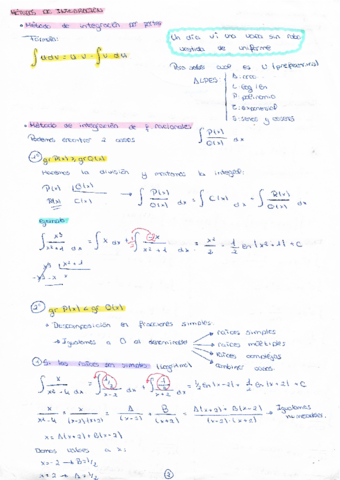 MÉTODOS DE INTEGRACIÓN
• Método de integración por partes
Fórmula:
∫ u dv = u · v - ∫ v du
Un día vi una vaca sin rabo
vestida de uniforme
Para saber cual es u (preferencia)
ALPES:
A: arco...
L: logaritmo
P: polinomio
E: exponencial
S: senos y cosenos
• Método de integración de f. racionales
Podemos encontrar 2 casos
∫ P(x)/Q(x) dx
1º gr P(x) ≥ gr Q(x)
Hacemos la división y montamos la integral:
P(x) |Q(x)
R(x) C(x)
→ ∫ P(x)/Q(x) dx = ∫ C(x) dx + ∫ R(x)/Q(x) dx
Ejemplo:
2º gr P(x) < gr Q(x)
• Descomposición en fracciones simples
• Igualamos a 0 el denominador
raíces simples
raíces múltiples
raíces complejas
combinar casos
① Si las raíces son simples (logaritmo)
x/(x²-4) = x/((x-2)(x+2)) = A/(x-2) + B/(x+2) = (A(x+2) + B(x-2))/((x-2)(x+2)) → Igualamos
numeradores.
x = A(x+2) + B(x-2)
Damos valores a x:
x=-2 → B=1/2
x=+2 → A=1/2